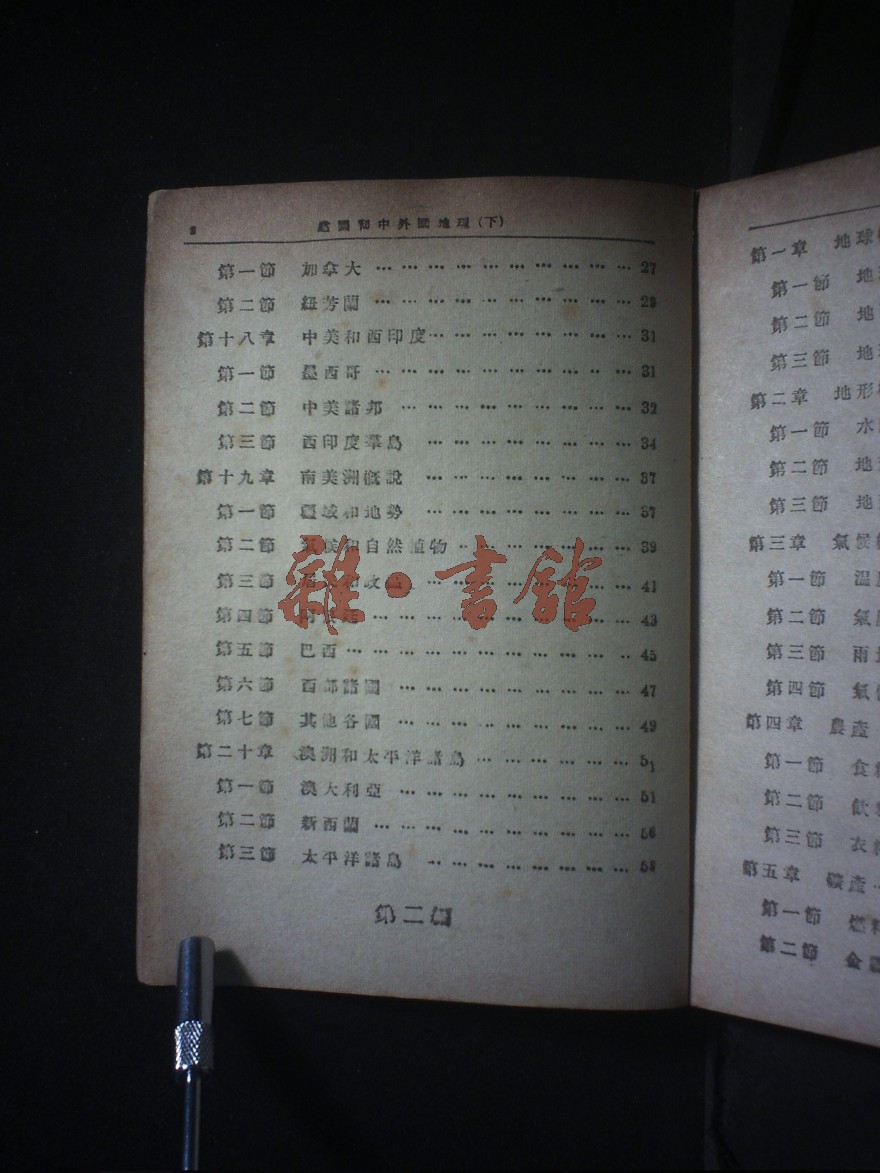 2 建國初中外國地理(下)
第一節 加拿大 … … … … … … … … … … 27
第二節 紐芳蘭 … … … … … … … … … … 29
第十八章 中美和西印度… … … … … … … … 31
第一節 墨西哥 … … … … … … … … … … 31
第二節 中美諸邦 … … … … … … … … … 32
第三節 西印度羣島 … … … … … … … … 34
第十九章 南美洲概說 … … … … … … … … 37
第一節 疆域和地勢 … … … … … … … … 37
第二節 氣候和自然植物 … … … … … … … 39
第三節 和政 … … … … … … … … 41
第四節 … … … … … … … … … … 43
第五節 巴西 … … … … … … … … … … … 45
第六節 西部諸國 … … … … … … … … … 47
第七節 其他各國 … … … … … … … … … 49
第二十章 澳洲和太平洋諸島 … … … … … … 51
第一節 澳大利亞 … … … … … … … … … 51
第二節 新西蘭 … … … … … … … … … … 56
第三節 太平洋諸島 … … … … … … … … 58
第二編
雜·書館
第一章 地球
第一節 地
第二節 地
第三節 地
第二章 地形
第一節 水
第二節 地
第三節 地
第三章 氣候
第一節 溫
第二節 氣
第三節 雨
第四節 氣
第四章 農產
第一節 食
第二節 飲
第三節 衣
第五章 礦產
第一節 燃料
第二節 金